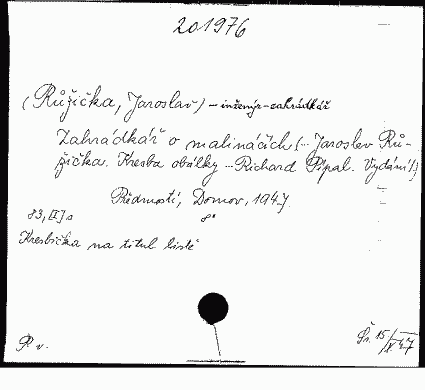 201976
(Růžička, Jaroslav) – inženýr-zahrádkář
Zahrádkář o malinácích (... Jaroslav Rů-
žička. Kresba obálky ... Richard Pípal. Vydání 1.)
Předmostí, Domov, 1947.
83, [I] s 8°
Kresbička na titul. listě
P. v. Sr. 15/X 47